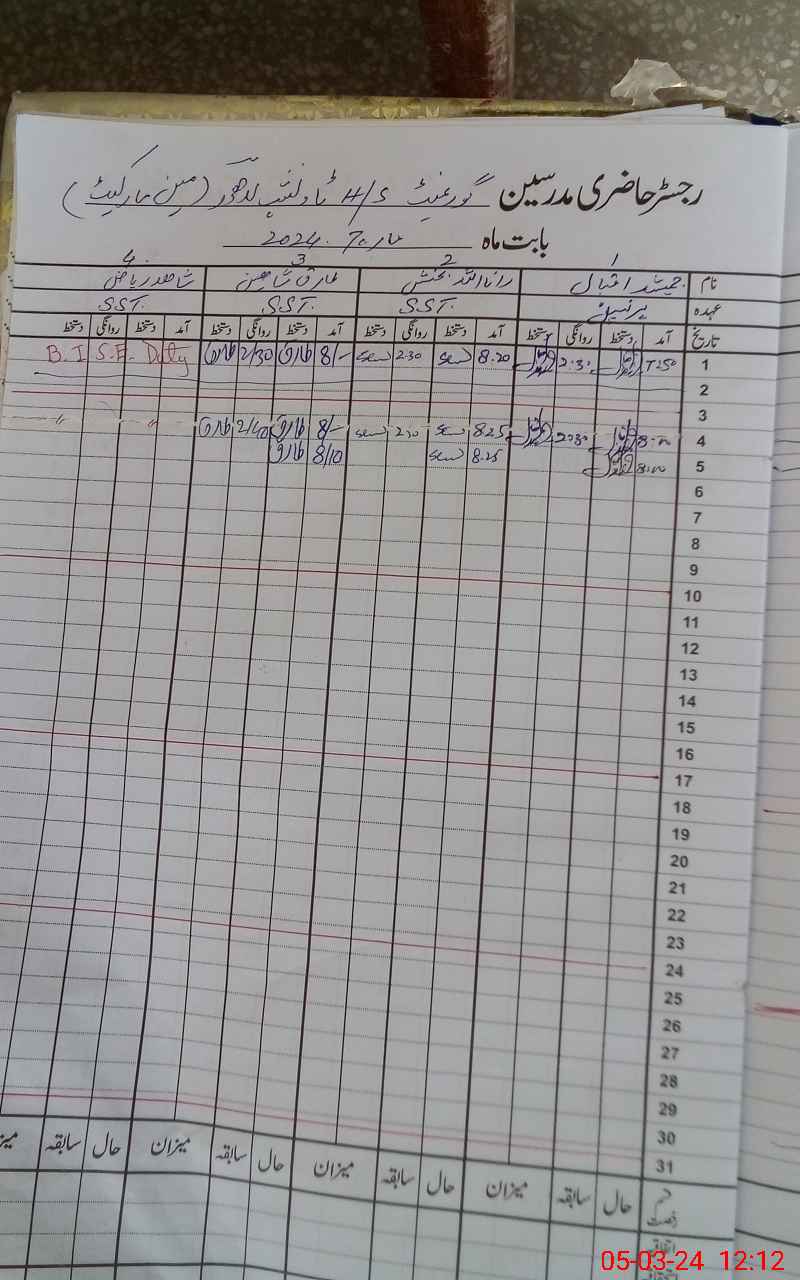 رجسٹر حاضری مدرسین گورنمنٹ H/S ٹاؤن شپ لاہور (مین مارکیٹ)
بابت ماہ مارچ 2024
1 2 3 4
نام جمشید اقبال رانا اللہ بخش طارق شاہین شاھد ریاض
عہدہ پرنسپل SST. SST. SST.
تاریخ آمد دستخط روانگی دستخط آمد دستخط روانگی دستخط آمد دستخط روانگی دستخط آمد دستخط روانگی دستخط
1 7:50 2:30 8.20 2.30 8/- طارق 2/30 طارق B.I.S.E. Duty
2
3
4 8:00 2:30 8.25 2.30 8/- طارق 2/40 طارق " "
5 8:00 8.25 8/10 طارق
6
7
8
9
10
11
12
13
14
15
16
17
18
19
20
21
22
23
24
25
26
27
28
29
30
31
حال سابقہ میزان حال سابقہ میزان حال سابقہ میزان حال سابقہ
اتفاقیہ
05-03-24 12:12